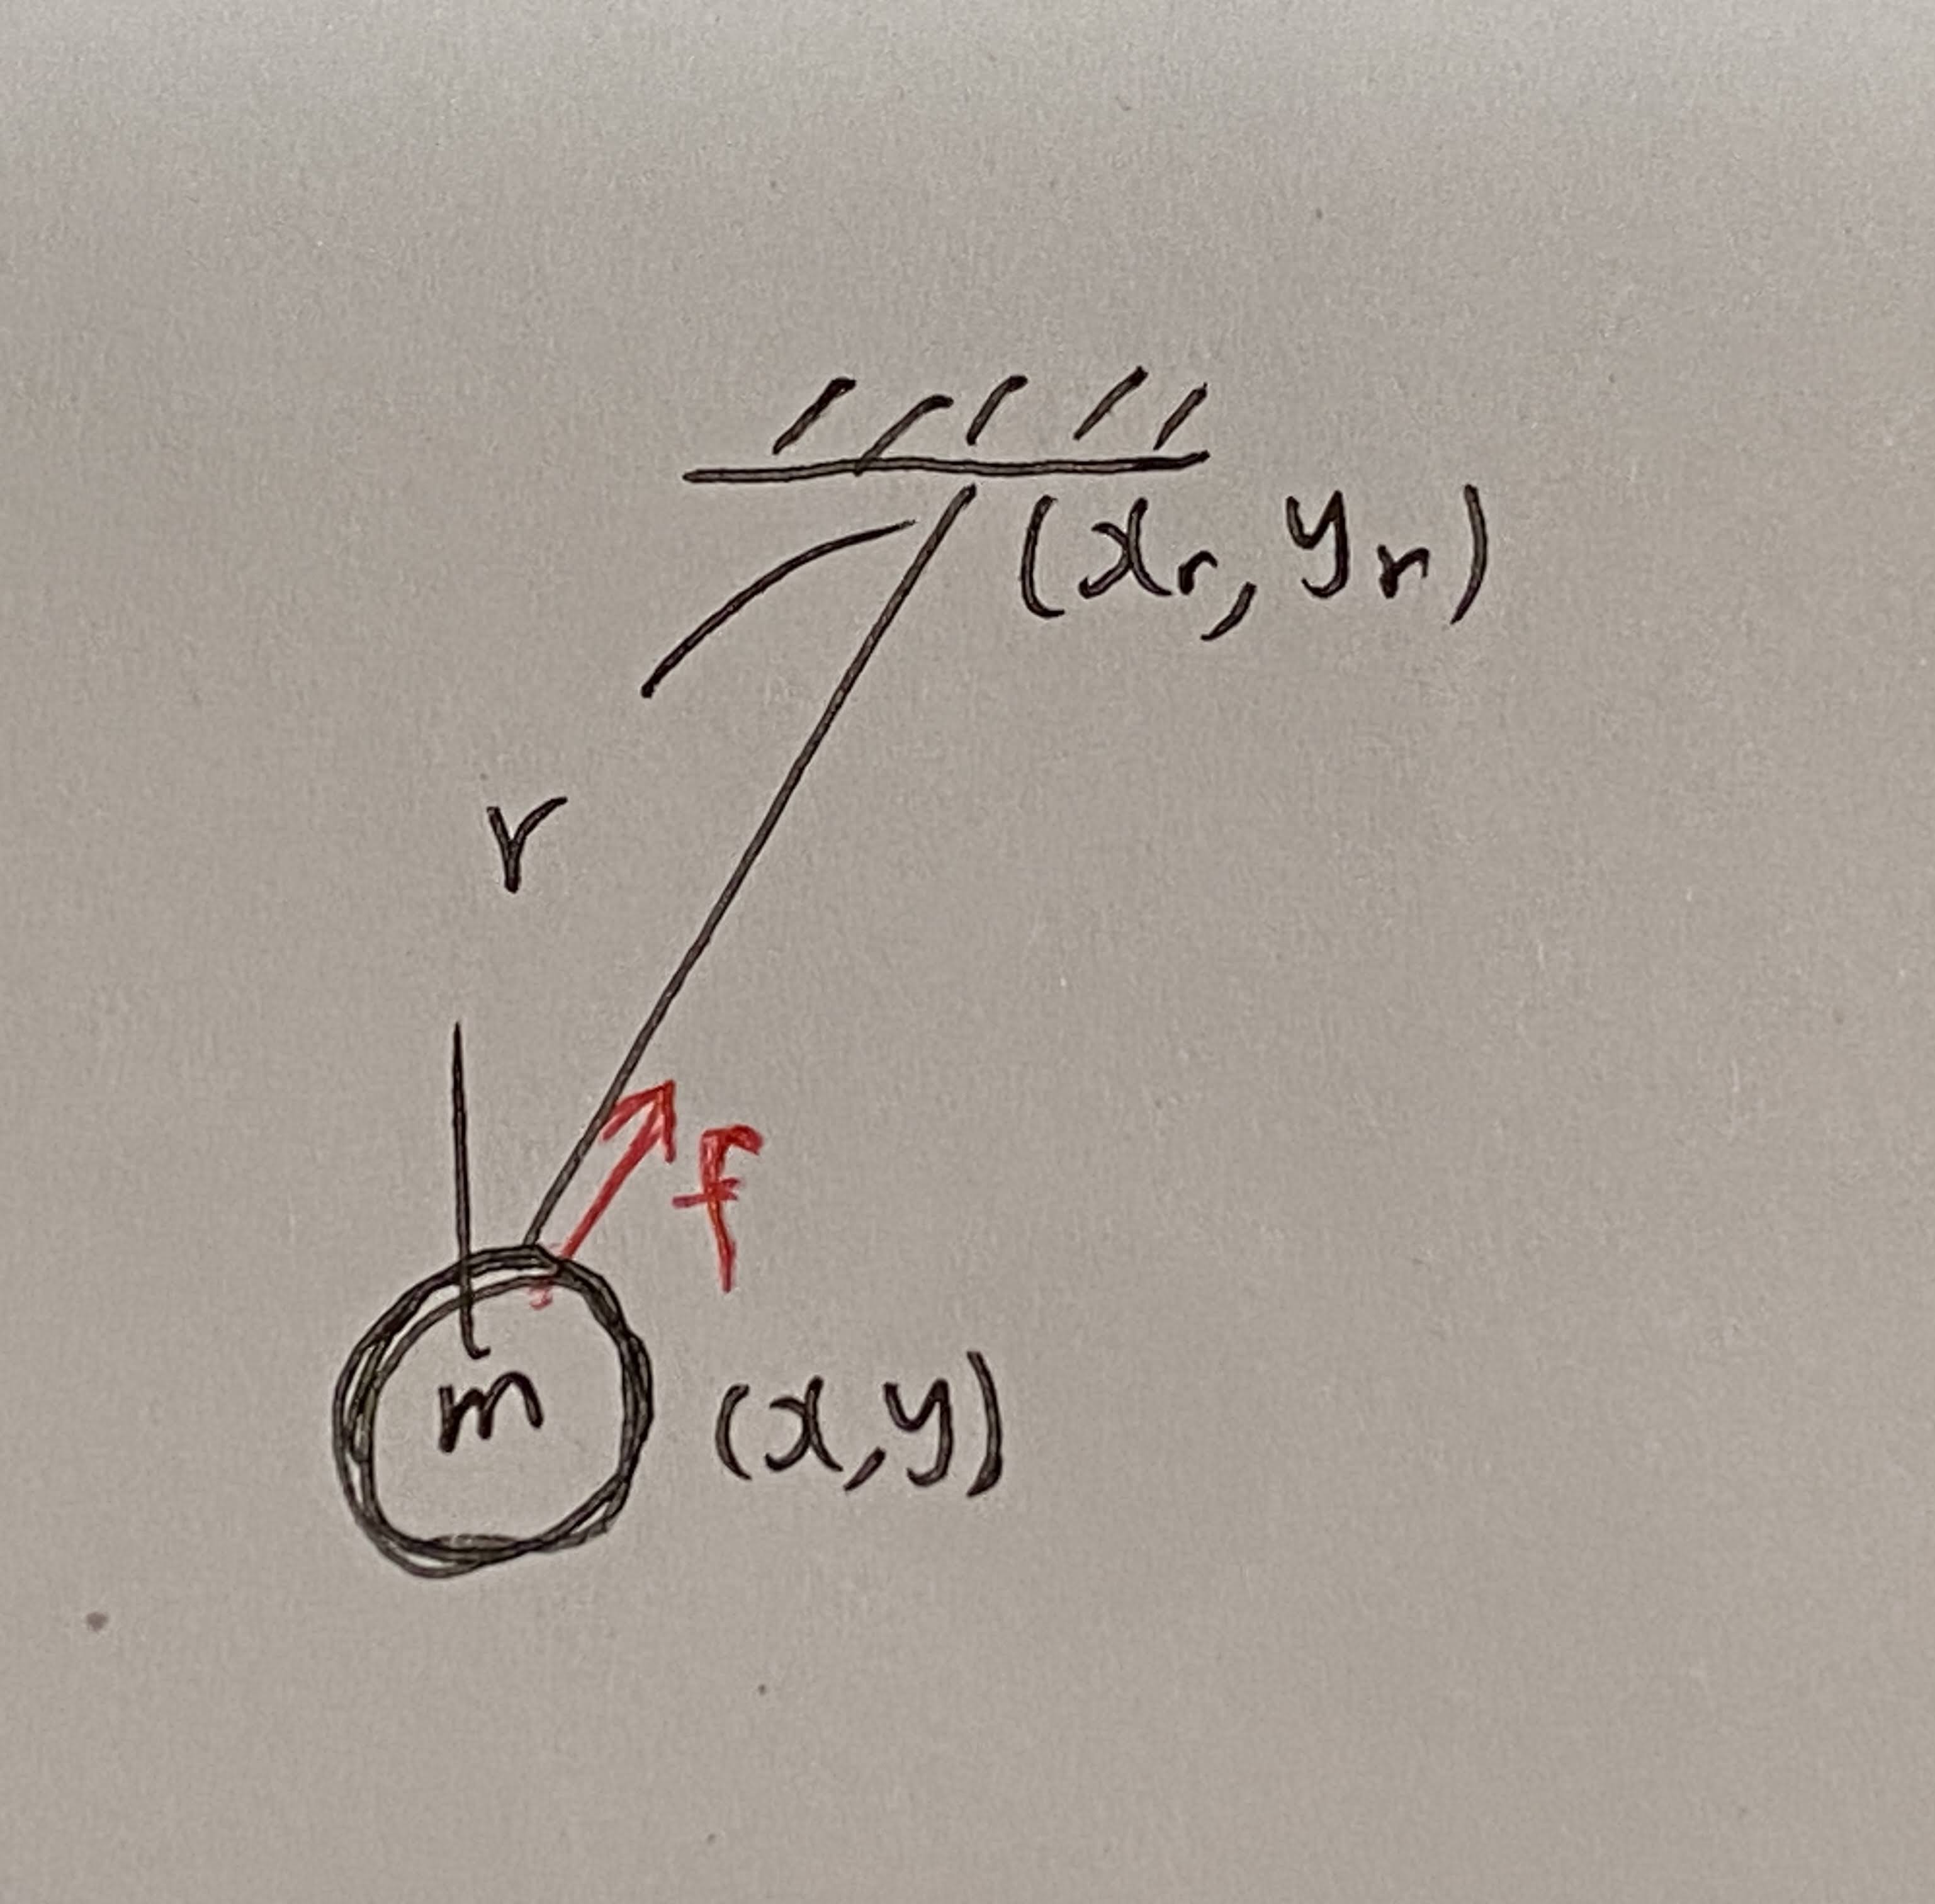 (xr, yr)
r
f
m
(x, y)